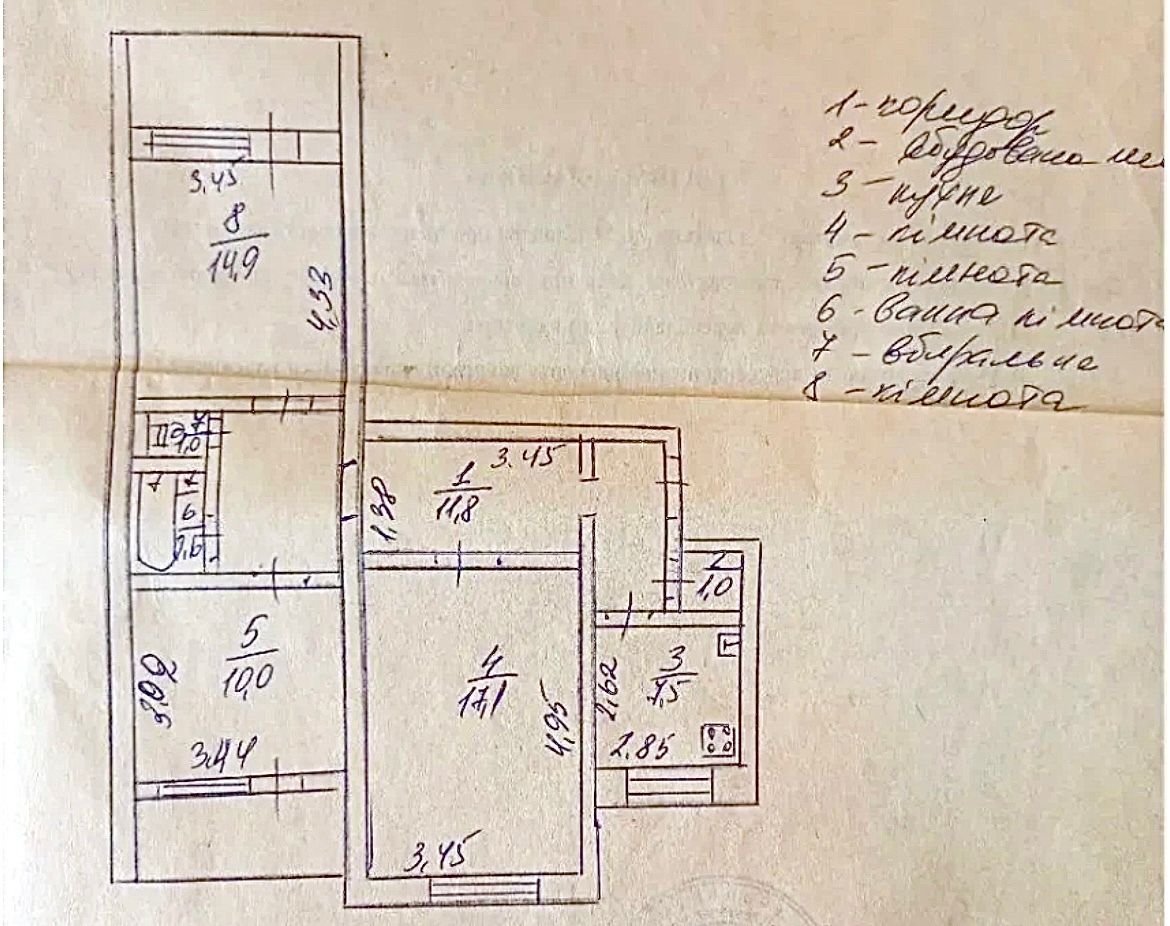 1 - коридор
2 - вбудована
3 - кухня
4 - кімната
5 - кімната
6 - ванна кімната
7 - вбиральня
8 - кімната
3,45
8
14,9
4,33
7
1,0
6
2,6
3.45
1
11,8
1,38
2
1,0
5
10,0
3,44
4
17,1
4,95
3,45
3
7,5
2,62
2.85